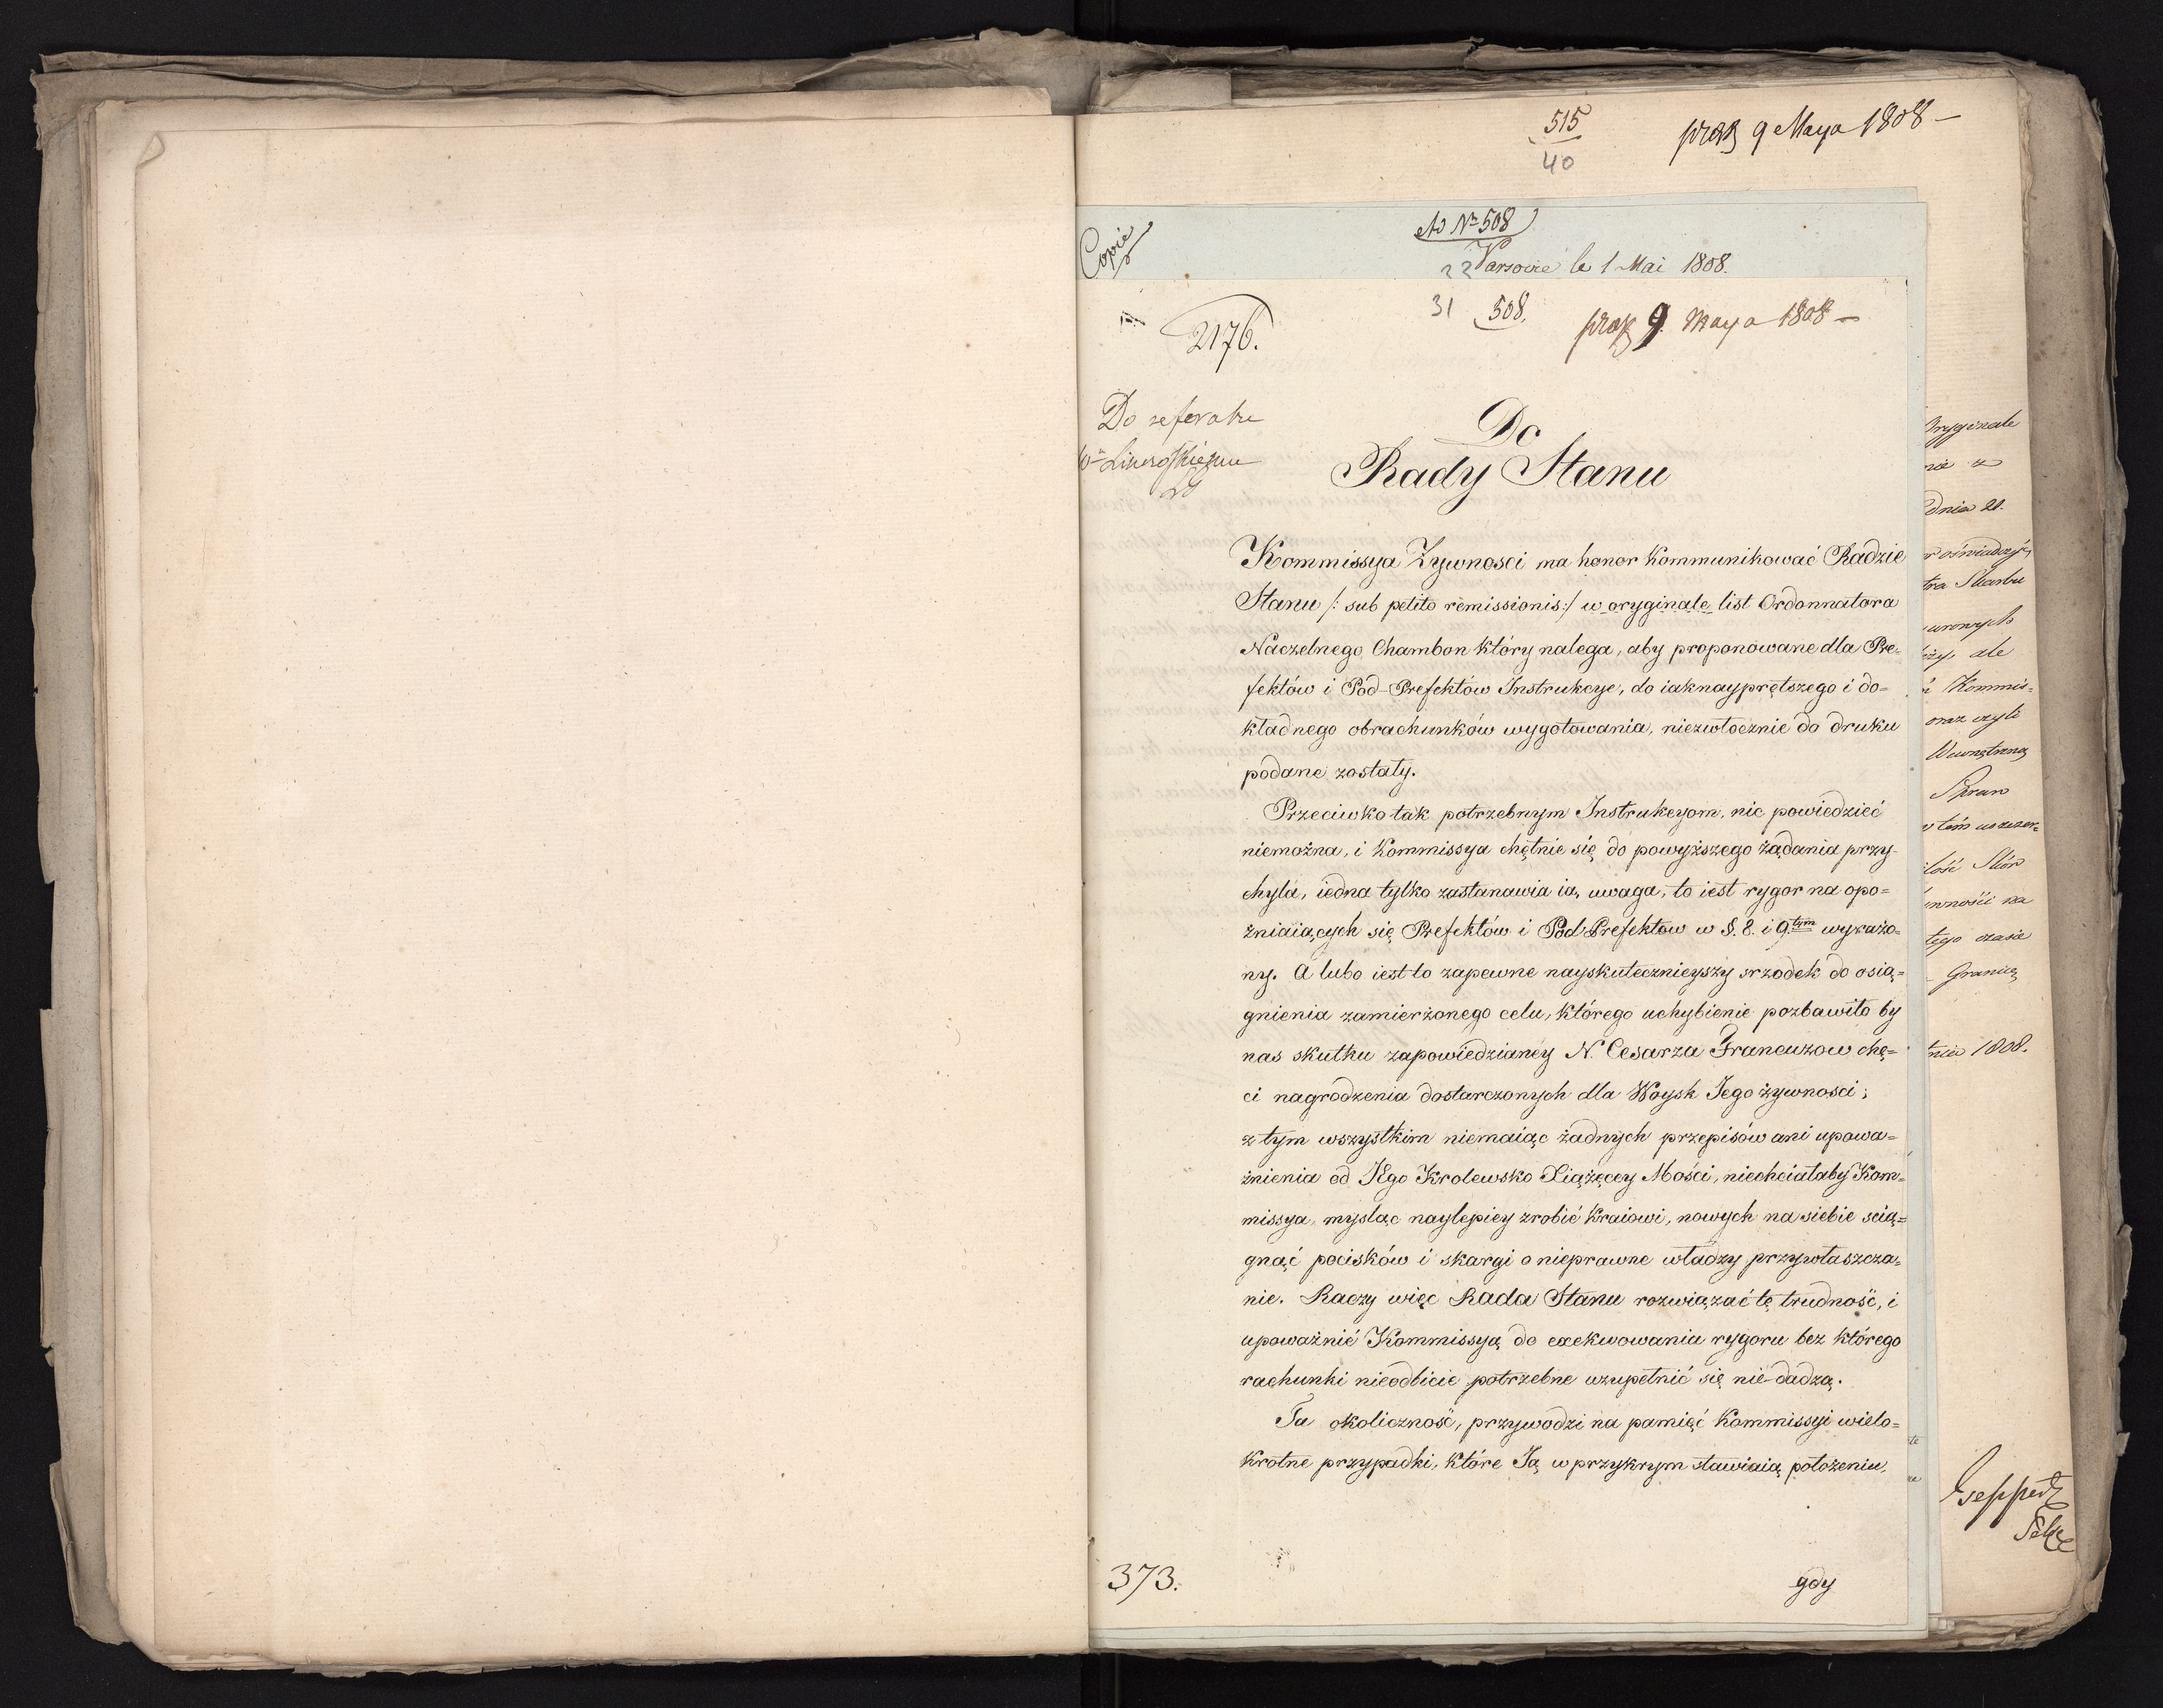 515
40
praes 9 Maya 1808 –
Copie
ad Nr 508
22
Varsovie le 1 Mai 1808.
31
508.
praes 9. Maya 1808 –
2176.
Do referatu
Do
Rady Stanu
Kommissya Żywnosci ma honor kommunikować Radzie
Stanu /: sub petito remissionis :/ w oryginale list Ordonnatora
Naczelnego Chambon który nalega, aby proponowane dla Pre=
fektów i Pod-Prefektów Instrukcye, do iaknayprętszego i do=
kładnego obrachunków wygotowania, niezwłocznie do druku
podane zostały.
Przeciwko tak potrzebnym Instrukcyom, nic powiedzieć
niemożna, i Kommissya chętnie się do powyższego żądania przy-
chyla, iedna tylko zastanawia ią uwaga, to iest rygor na opo=
żniaiących się Prefektów i Pod Prefektow w §. 8. i 9tym wyrażo=
ny. A lubo iest to zapewne nayskutecznieyszy srzodek do osią=
gnienia zamierżonego celu, którego uchybienie pozbawiło by
nas skutku zapowiedzianey N. Cesarza Francuzow chę=
ci nagrodzenia dostarczonych dla Woysk Jego żywnosci;
z tym wszystkim niemaiąc żadnych przepisów ani upowa=
żnienia od JEgo Krolewsko Xiążęcey Mości, niechciałaby Kom=
missya, mysląc naylepiey zrobić Kraiowi, nowych na siebie scią=
gnąć pocisków i skargi o nieprawne władzy przywłaszcza=
nie. Raczy więc Rada Stanu rozwiązać tę trudność, i
upoważnić Kommissyą do exekwowania rygoru bez którego
rachunki nieodbicie potrzebne uzupełnić się nie dadzą.
Ta okoliczność, przywodzi na pamięć Kommissyi wielo=
krotne przypadki, które Ją w przykrym stawiaią położeniu,
gdy
373.
Oryginale
nie z
dnia 21.
oświadczyć,
tra Skarbu
urowych
eży, ale
i Kommis=
oraz czyli
Wewnętrzną
Spraw
w tém uszczer=
ilość Skór
wności na
tego czasie
Granicę
tnia 1808.